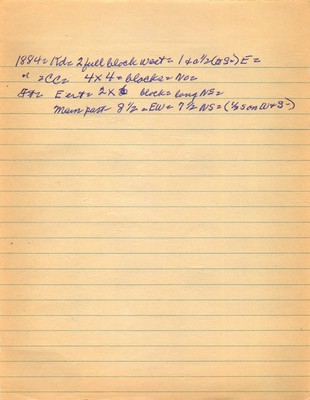 1884 = Kd = 2 full block west = 1 & a ½ (# 3-) E =
" = CC = 4 X 4 = blocks = No =
## = E ext = 2 X 6 block = long NS =
Main part 8 ½ = EW = 7 ½ NS = (½ s on W & S-)